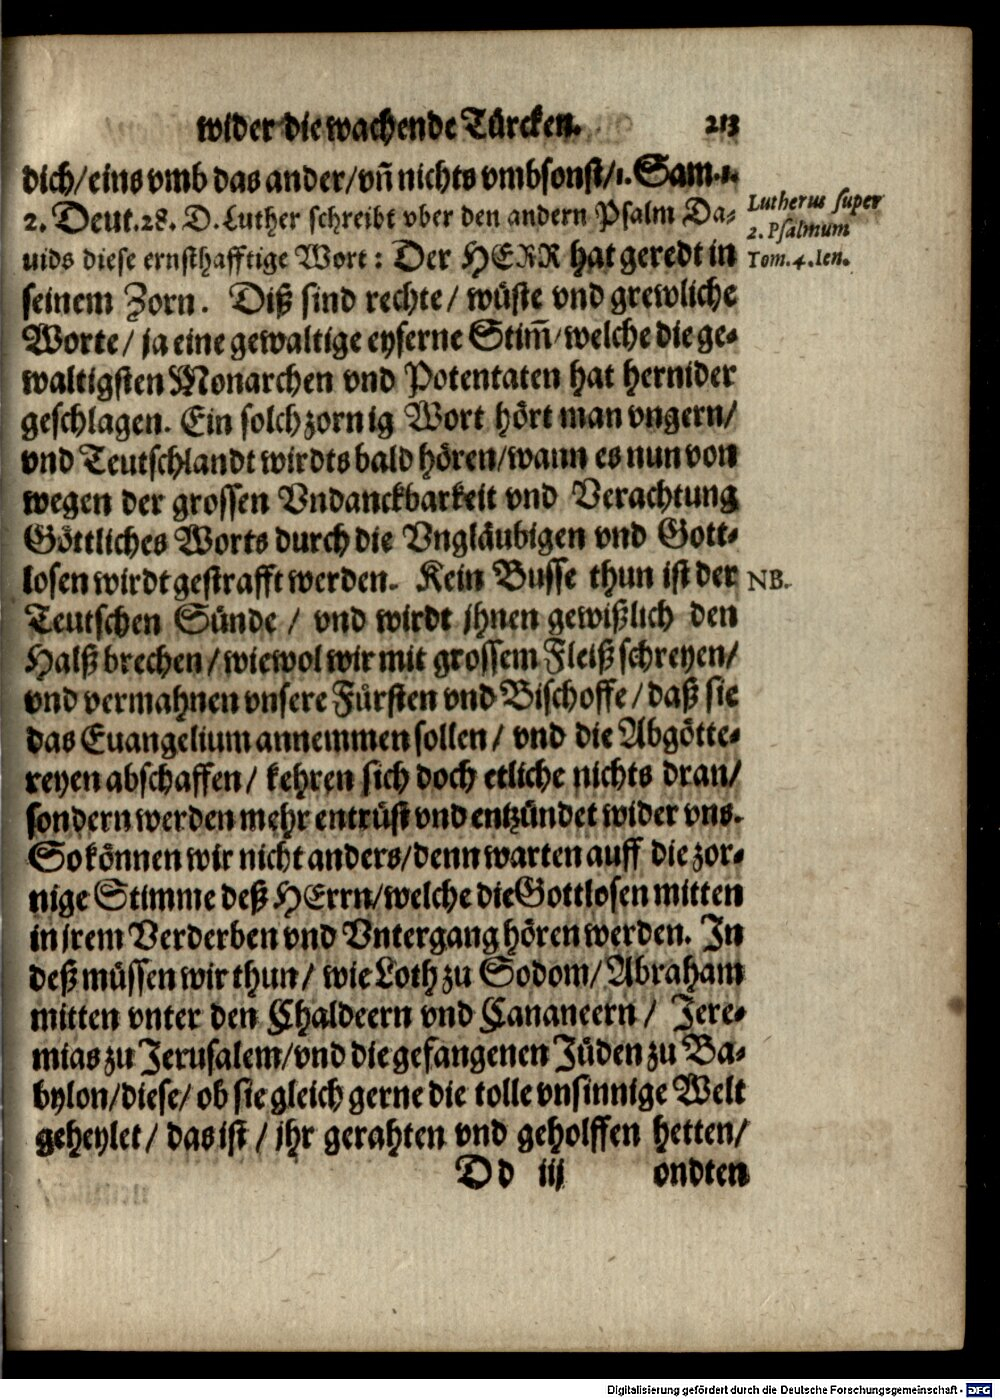 wider die wachende Türcken. 213
dich/ eins vmb das ander/ vñ nichts vmbsonst/ 1. Sam. 1.
2. Deut. 28. D. Luther schreibt vber den andern Psalm Da-
uids diese ernsthafftige Wort: Der HERR hat geredt in
seinem Zorn. Diß sind rechte/ wüste vnd grewliche
Worte/ ja eine gewaltige eyserne Stim̄/ welche die ge-
waltigsten Monarchen vnd Potentaten hat hernider
geschlagen. Ein solch zornig Wort hört man vngern/
vnd Teutschlandt wirdts bald hören/ wann es nun von
wegen der grossen Vndanckbarkeit vnd Verachtung
Göttliches Worts durch die Vngläubigen vnd Gott-
losen wirdt gestrafft werden. Kein Busse thun ist der
Teutschen Sünde/ vnd wirdt jhnen gewißlich den
Halß brechen/ wiewol wir mit grossem Fleiß schreyen/
vnd vermahnen vnsere Fürsten vnd Bischoffe/ daß sie
das Euangelium annemmen sollen/ vnd die Abgötte-
reyen abschaffen/ kehren sich doch etliche nichts dran/
sondern werden mehr entrüst vnd entzündet wider vns.
So können wir nicht anders/ denn warten auff die zor-
nige Stimme deß HErrn/ welche die Gottlosen mitten
in jrem Verderben vnd Vntergang hören werden. In
deß müssen wir thun/ wie Loth zu Sodom/ Abraham
mitten vnter den Chaldeern vnd Cananeern/ Jere-
mias zu Jerusalem/ vnd die gefangenen Jüden zu Ba-
bylon/ diese/ ob sie gleich gerne die tolle vnsinnige Welt
geheylet/ das ist/ jhr gerahten vnd geholffen hetten/
Dd iij ondten
Lutherus super
2. Psalmum
Tom. 4. Ien.
NB.
Digitalisierung gefördert durch die Deutsche Forschungsgemeinschaft - DFG